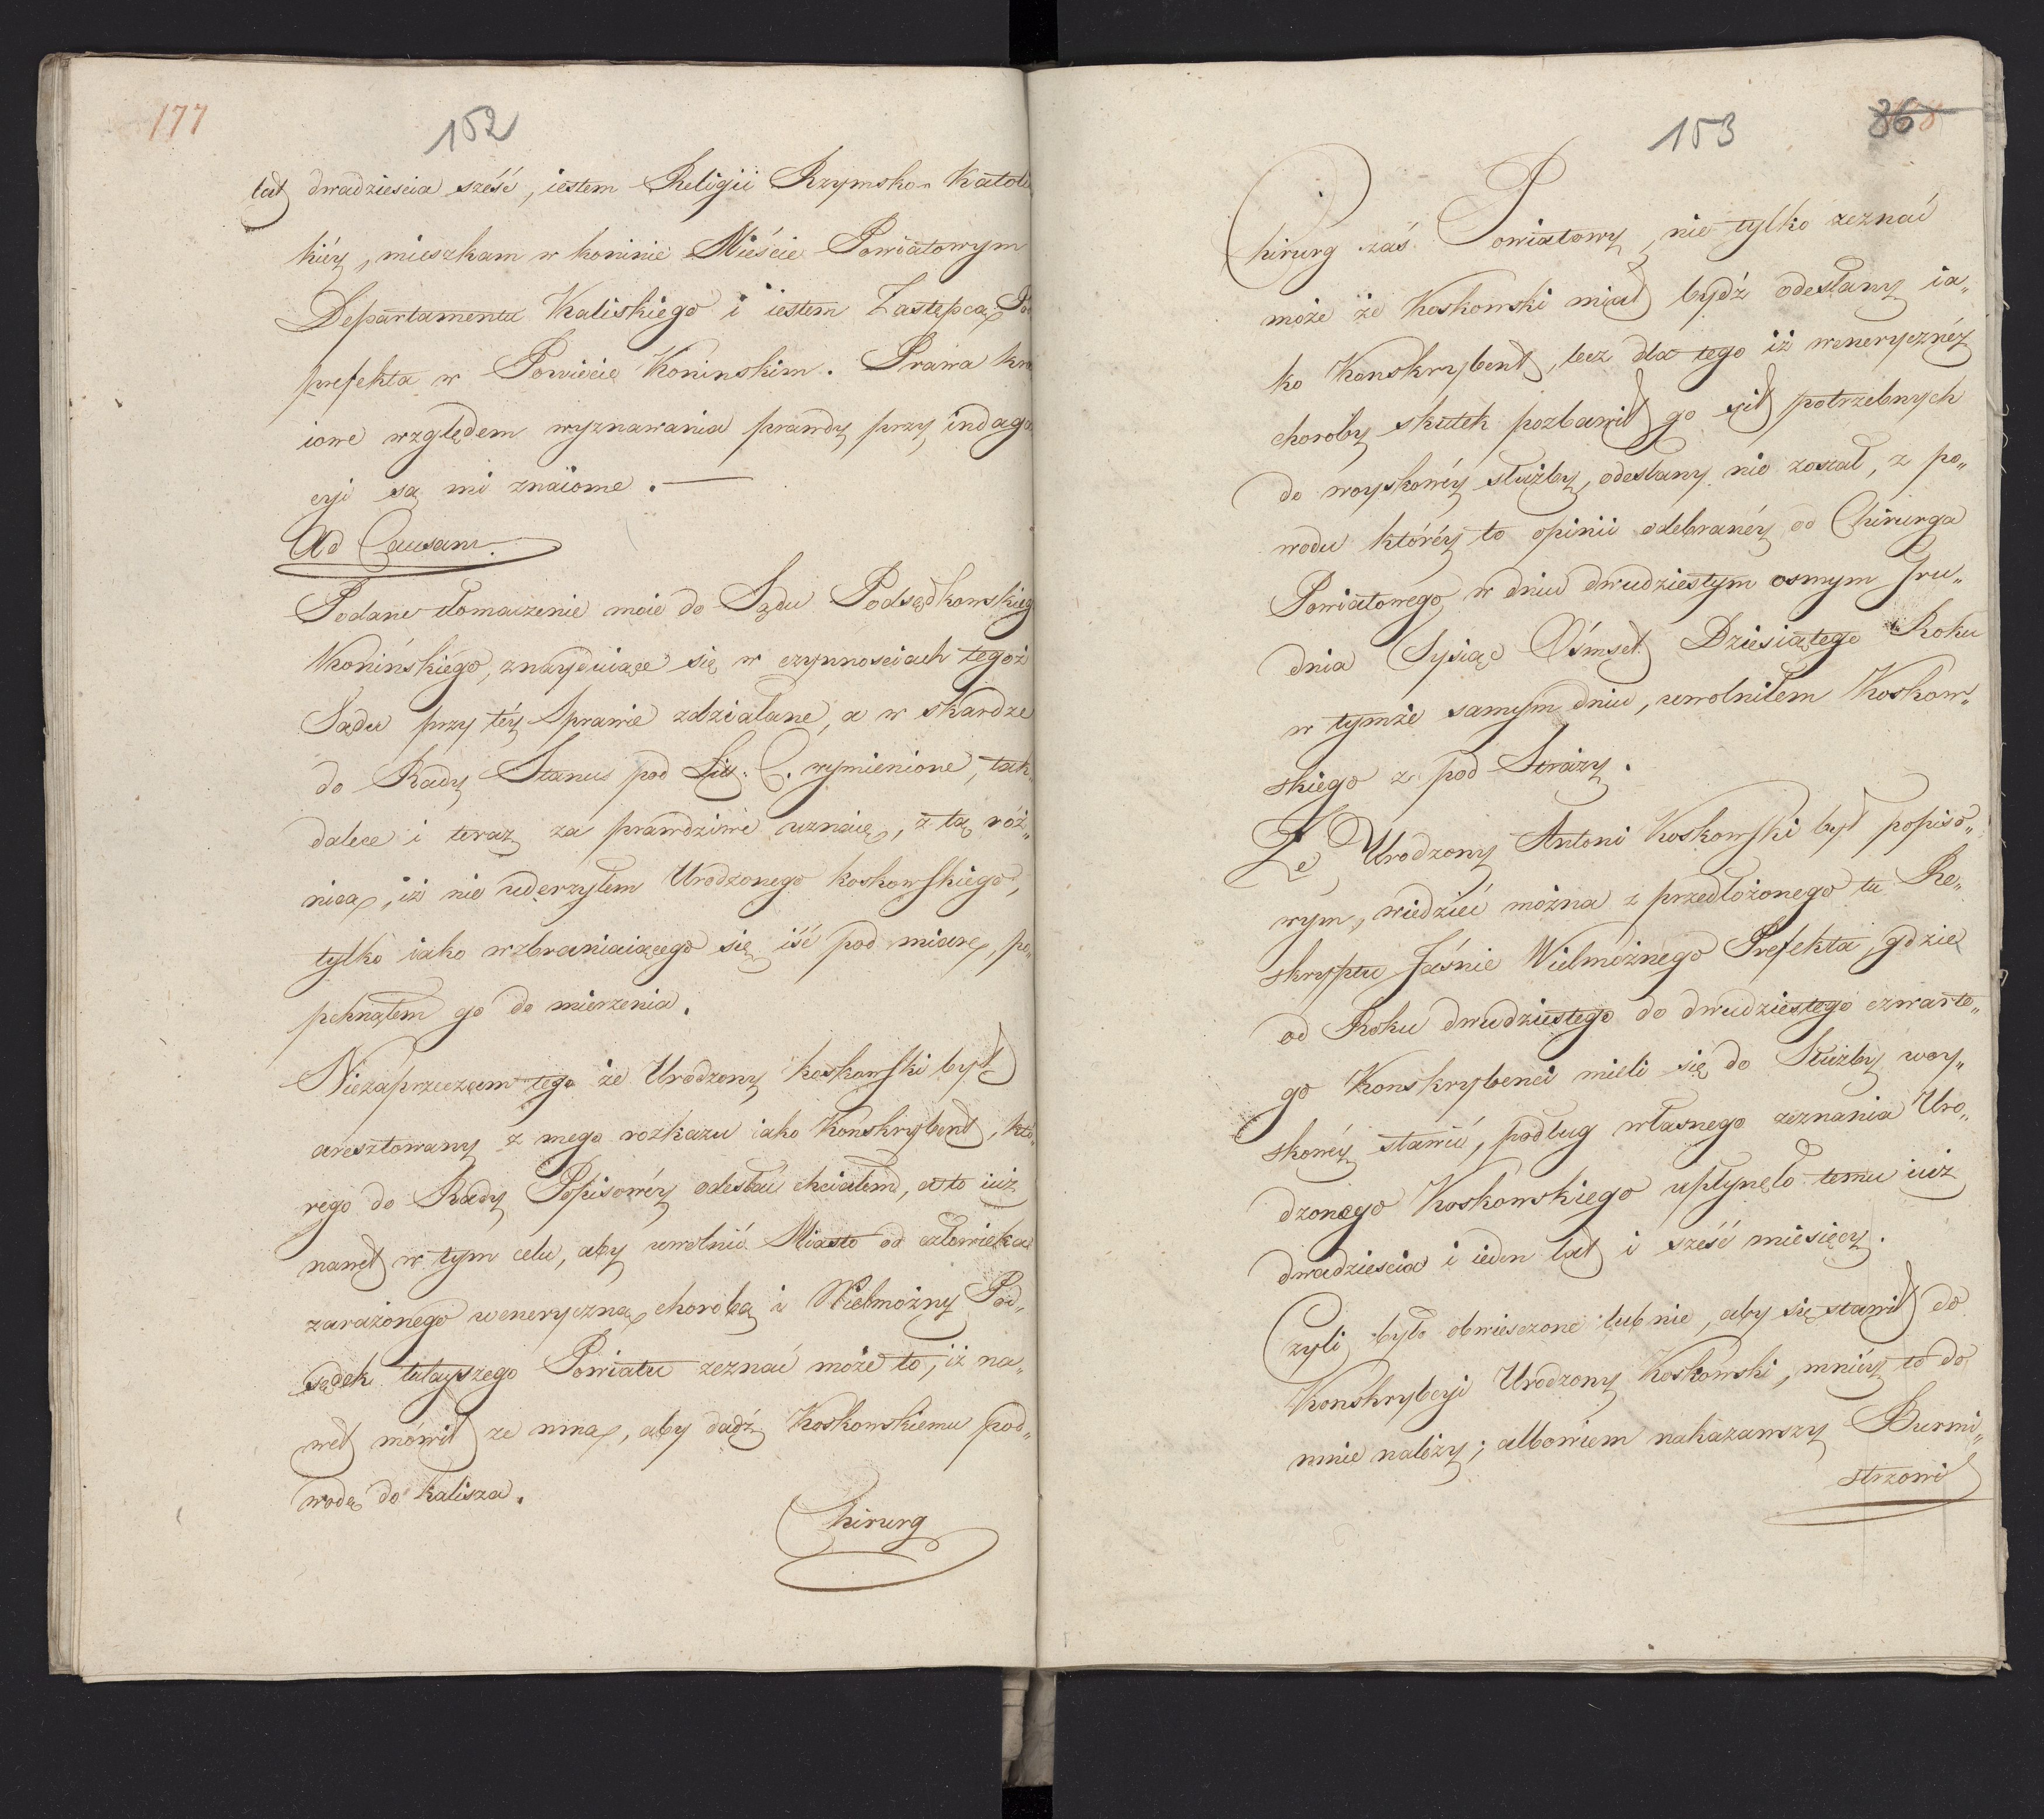 177
152
lat dwadzieścia sześć, iestem Religii Rzymsko Katoli
kiéy, mieszkam w Koninie Mieście Powiatowym
Departamentu Kaliskiego i iestem Zastępcą Po
prefekta w Powiecie Koninskim. Prawa kra
iowe względem wyznawania prawdy przy indaga
cyi są mi znaiome. —
Ad Causam.
Podane tłomaczenie moie do Sądu Podsędkowskieg
Konińskiégo, znayduiące się w czynnościach tegoż
Sądu przy téy Sprawie zdziałane, a w skardze
do Rady Stanu pod Lit. C. wymienione, tak
dalece i teraz za prawdziwe uznaię, z tą róż„
nicą, iż nie uderzyłem Urodzonego Koskowskiego,
tylko iako wzbraniaiącego się iść pod miarę, po„
pchnąłem go do mierzenia.
Niezaprzeczam tego że Urodzony Koskowski był
aresztowany z mego rozkazu iako Konskrybent, któ„
rego do Rady Popisowéy odesłać chciałem, a to iuż
nawet w tym celu, aby uwolnić Miasto od człowieka
zarażonego weneryczną chorobą i Wielmożny Pod„
sędek tutayszego Powiatu zeznać może to, iż na„
wet mówił ze mną, aby dadź Koskowskiemu pod„
wodę do Kalisza.
Chirurg
153
86
Chirurg zaś Powiatowy, nie tylko zeznać
może że Koskowski miał bydź odesłany ia„
ko Konskrybent, lecz dla tego iż wenerycznéy
choroby skutek pozbawił go sił potrzebnych
do woyskowéy służby, odesłany nie został, z po„
wodu któréy to opinii odebranéy od Chirurga
Powiatowego w dniu dwudziestym osmym Gru„
dnia Tysiąc Ośmset Dziesiątego Roku
w tymże samym dniu, uwolniłem Koskow„
skiego z pod Straży.
Że Urodzony Antoni Koskowski był popiso„
wym, wiedzieć można z przedłożonego tu Re„
skryptu Jaśnie Wielmożnego Prefekta, gdzie
od Roku dwudziestego do dwudziestego czwarte„
go Konskrybenci mieli się do Służby woy„
skowéy stawić, podług własnego zeznania Uro„
dzonego Koskowskiego upłynęło temu iuż
dwadzieścia i ieden lat i sześć miesięcy.
Czyli było obwieszczone lub nie, aby się stawił do
Konskrybcyi Urodzony Koskowski, mniéy to do
mnie należy; albowiem nakazawszy Burmi„
strzowi